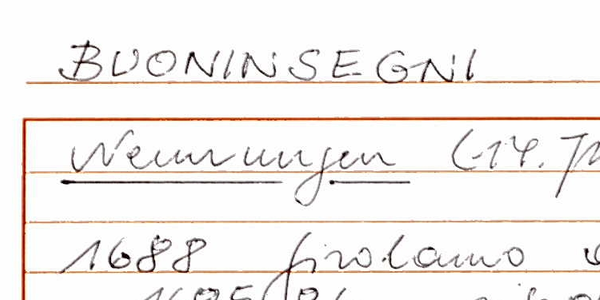 BUONINSEGNI
Nennungen (-14. Jh
1688 Girolamo